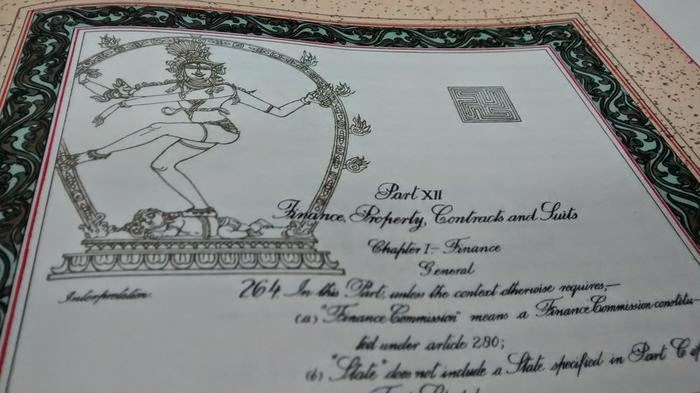 Part XII
Finance, Property, Contracts and Suits
Chapter I.— Finance
General
Interpretation.
264. In this Part, unless the context otherwise requires,—
(a) "Finance Commission" means a Finance Commission constitu-
ted under article 280;
(b) "State" does not include a State specified in Part C of